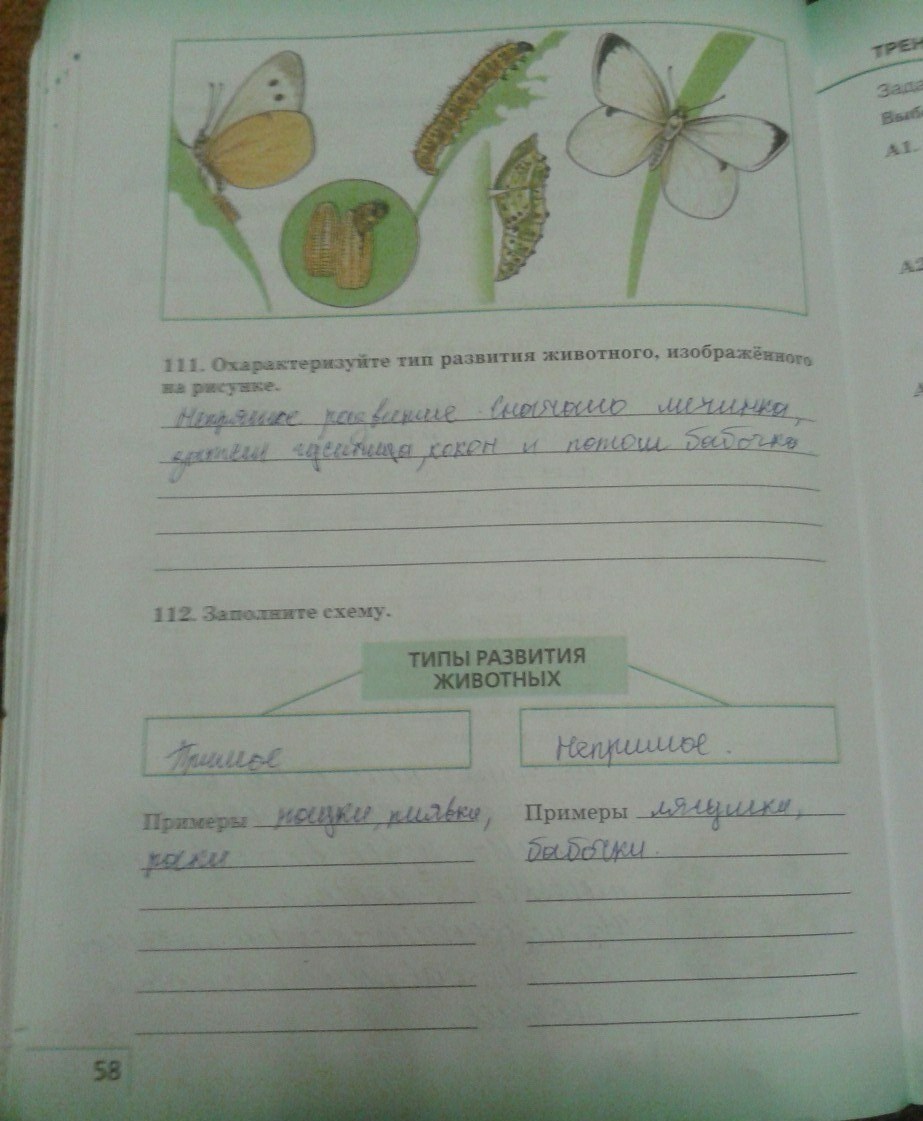 ТРЕН
Зада
Выбе
А1.
А2
А
111. Охарактеризуйте тип развития животного, изображённого
на рисунке.
Непрямое развитие. Сначала личинка,
затем гусеница, кокон и потом бабочка
112. Заполните схему.
ТИПЫ РАЗВИТИЯ
ЖИВОТНЫХ
Прямое
Непрямое.
Примеры пауки, пиявки,
раки
Примеры лягушка,
бабочки.
58